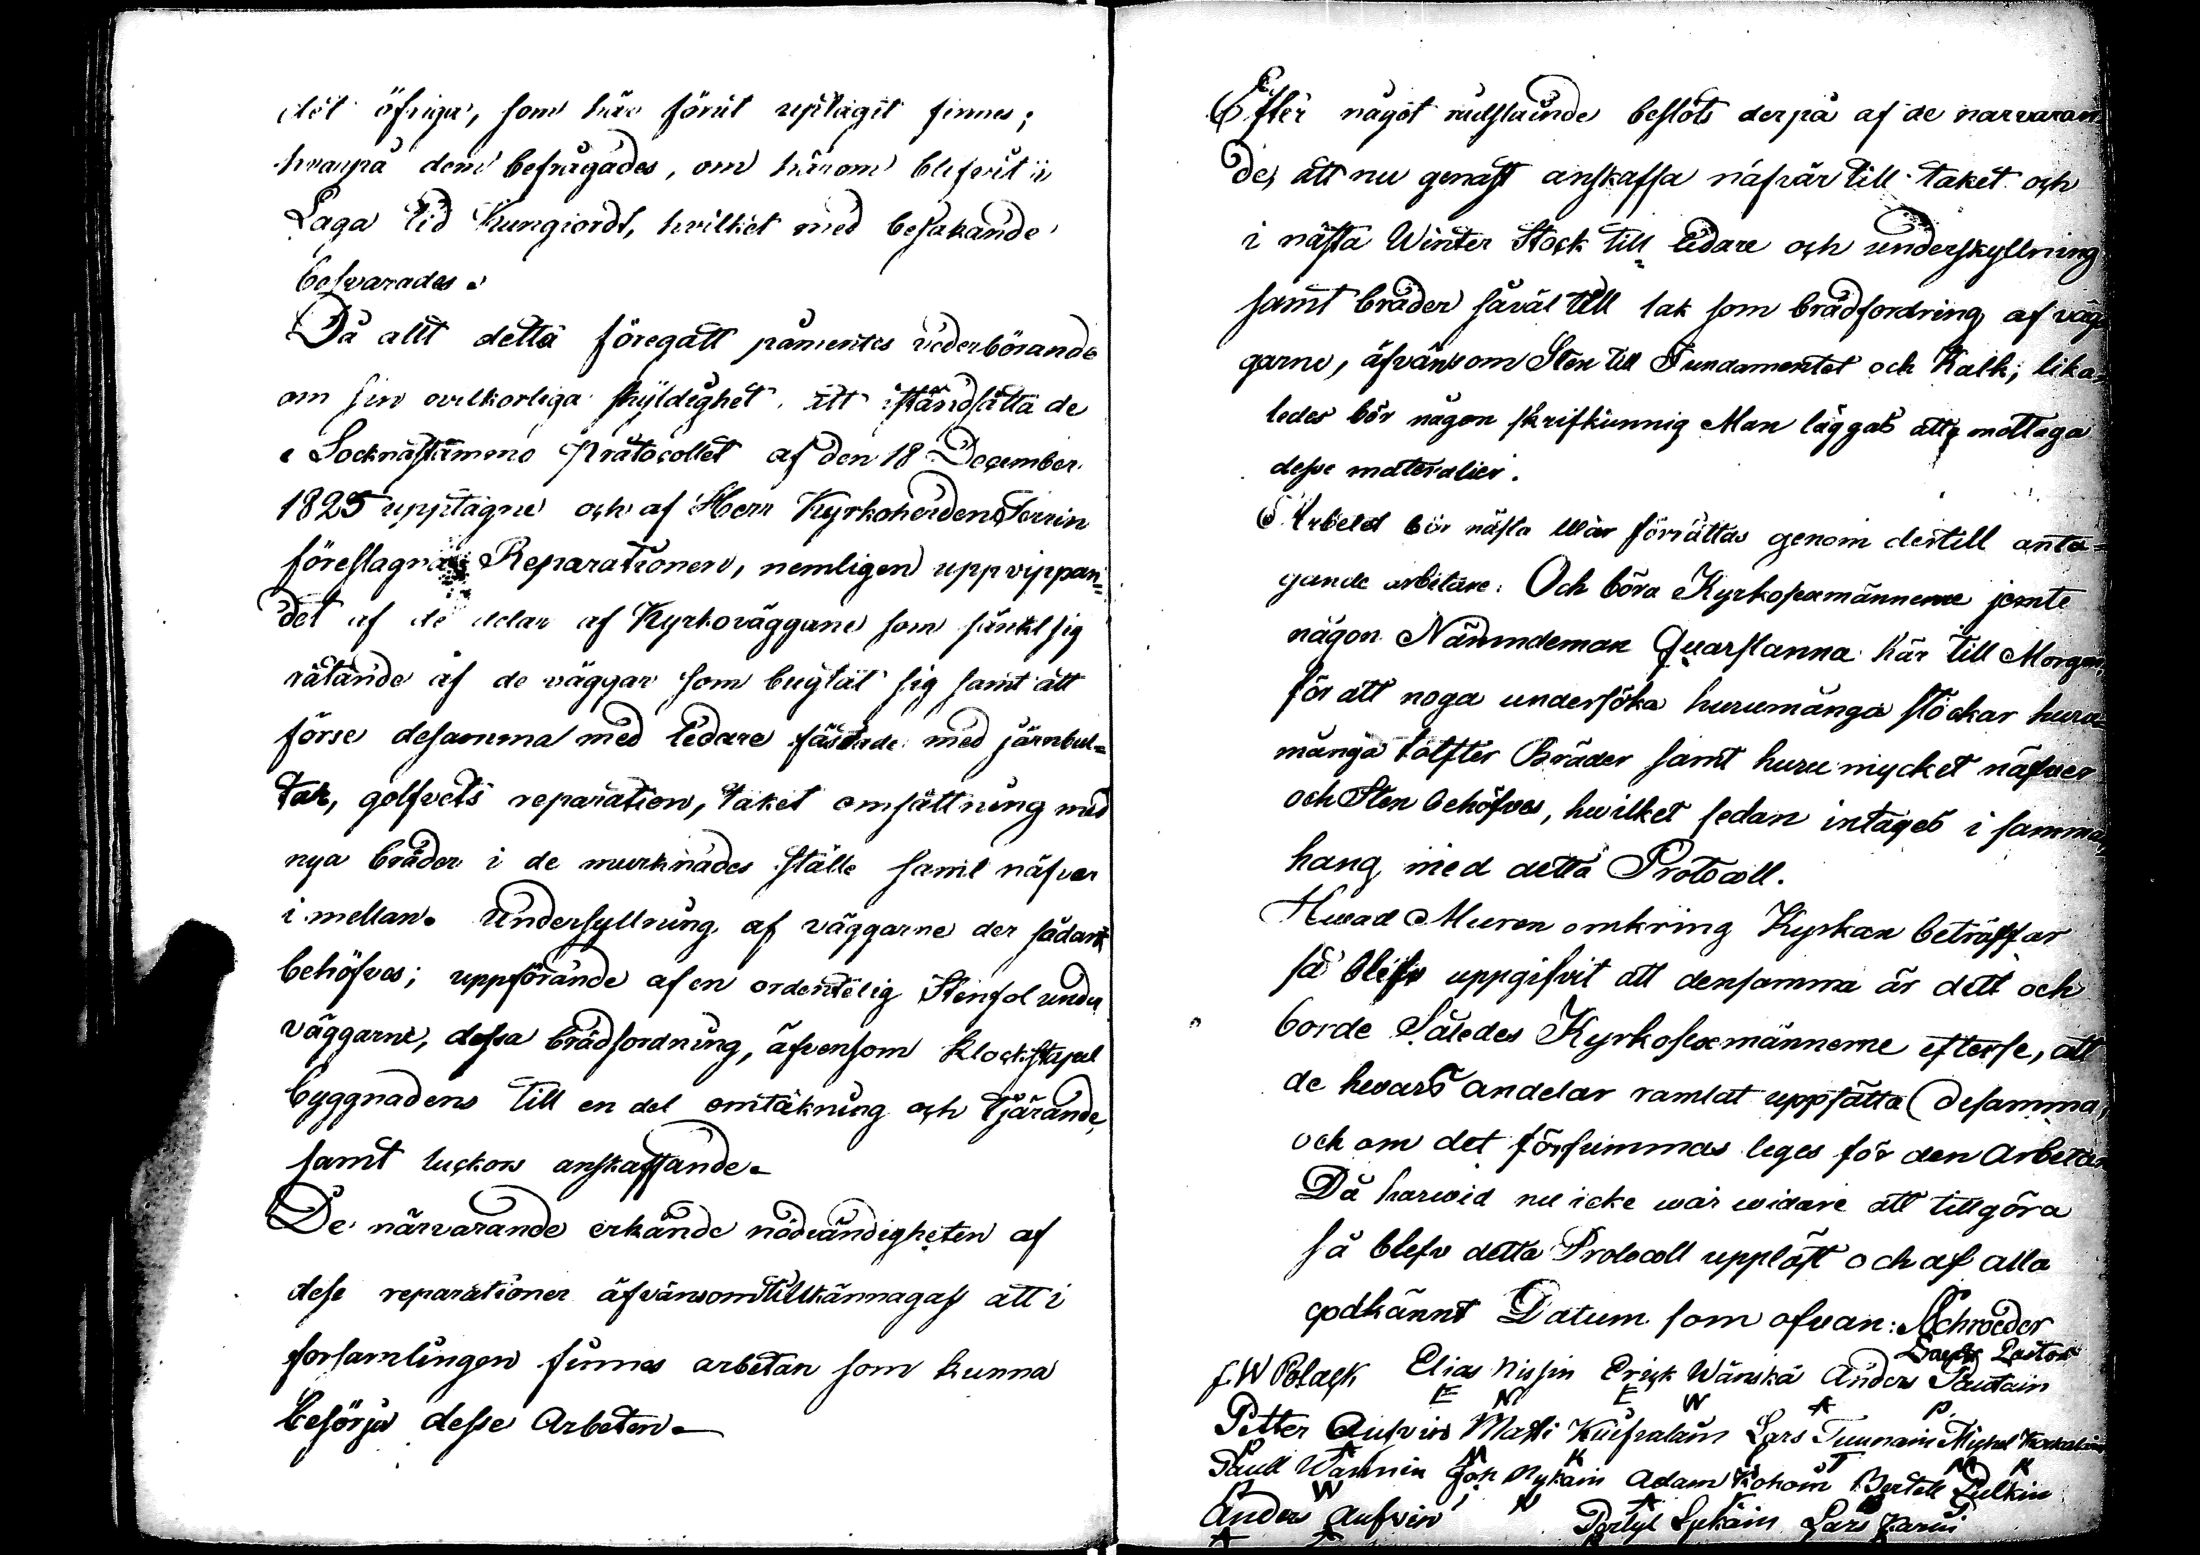 det öfriga, som här förut uptagit finnes;
hvarpå dem befrågades, om härom blifvit i
Laga tid Kungiordt, hvilket med bejakande
besvarades.
Då allt detta föregått påmentes vederbörande
om sin ovilkorliga skyldighet att iståndsätta de
i Socknästämmo Prätocollet af den 18 December
1825 upptagne och af Herr Kyrkoherden Forrin
föreslagna Reparationen, nemligen uppvippan=
det af de delar af Kyrkoväggane som sänkt sig
rätände af de väggar som bugtat sig samt att
förse desamma med ledare fästade med järnbul=
tar, golfvets reparation, taket omsättning med
nya bräder i de murknades ställe samt näfver
i mellan. Undersyllning af väggarne der sådant
behöfves; uppförande af en ordentelig Stenfot under
väggarne, dessa brädfordning, äfvensom klockstapel
byggnadens till en del omtäkning och tjärande,
samt luckors anskaffande.
De närvarande erkände nödvändigheten af
desse reparationer äfvänsom tillkännagafs att i
forsamlingen finnes arbetan som kunna
besörja desse Arbeten.
Efter något rådslaende beslöts derpå af de narvaran
de, att nu genast anskaffa näfvär till taket och
i nästa Winter Stock till ledare och underskyllning
samt bräder såväl till tak som brädfordring af väg
garne, äfvänsom Sten till Fundamentet och Kalk; lika
ledes bör någon skrifkunnig Man läggas att mottaga
desse materialier.
Arbetet bör nästa Wår förrättas genom dertill anta=
gande arbetare. Och böra Kyrkosexmännerne jemte
någon Nämndeman quarstanna här till Morgon,
för att noga undersöka hurumånga stockar huru
många tolfter Bräder samt huru mycket näfver
och Sten behöfves, hwilket sedan intages i samma
hang med detta Protocoll.
Hwad Muren omkring Kyrkan beträffar
så blifv uppgifvit att densamma är dett och
borde Således Kyrkosexmännerne efterse, att
de hwars andelar ramlat uppsätta desamma,
och om det försummas leges för den Arbetare
Då harwid nu icke war widare att tillgöra
så blefv detta Protocoll uppläst och af alla
godkännt Datum som ofvan: Schrœder
Pastor
J W Polack Elias Nissin Erick Wänskä Anders Pautain
E N E W A P
Petter Aufvin Matti Kuifvalain Lars Tuunain Michel Korkalain
P A M K L T M K
Paull Wännin Joh Nykain Adam Kohoin Bertell Pulkin
P W J N A K B P
Anders Aufvin Pertyl Lykäin Lars Karvi
A A